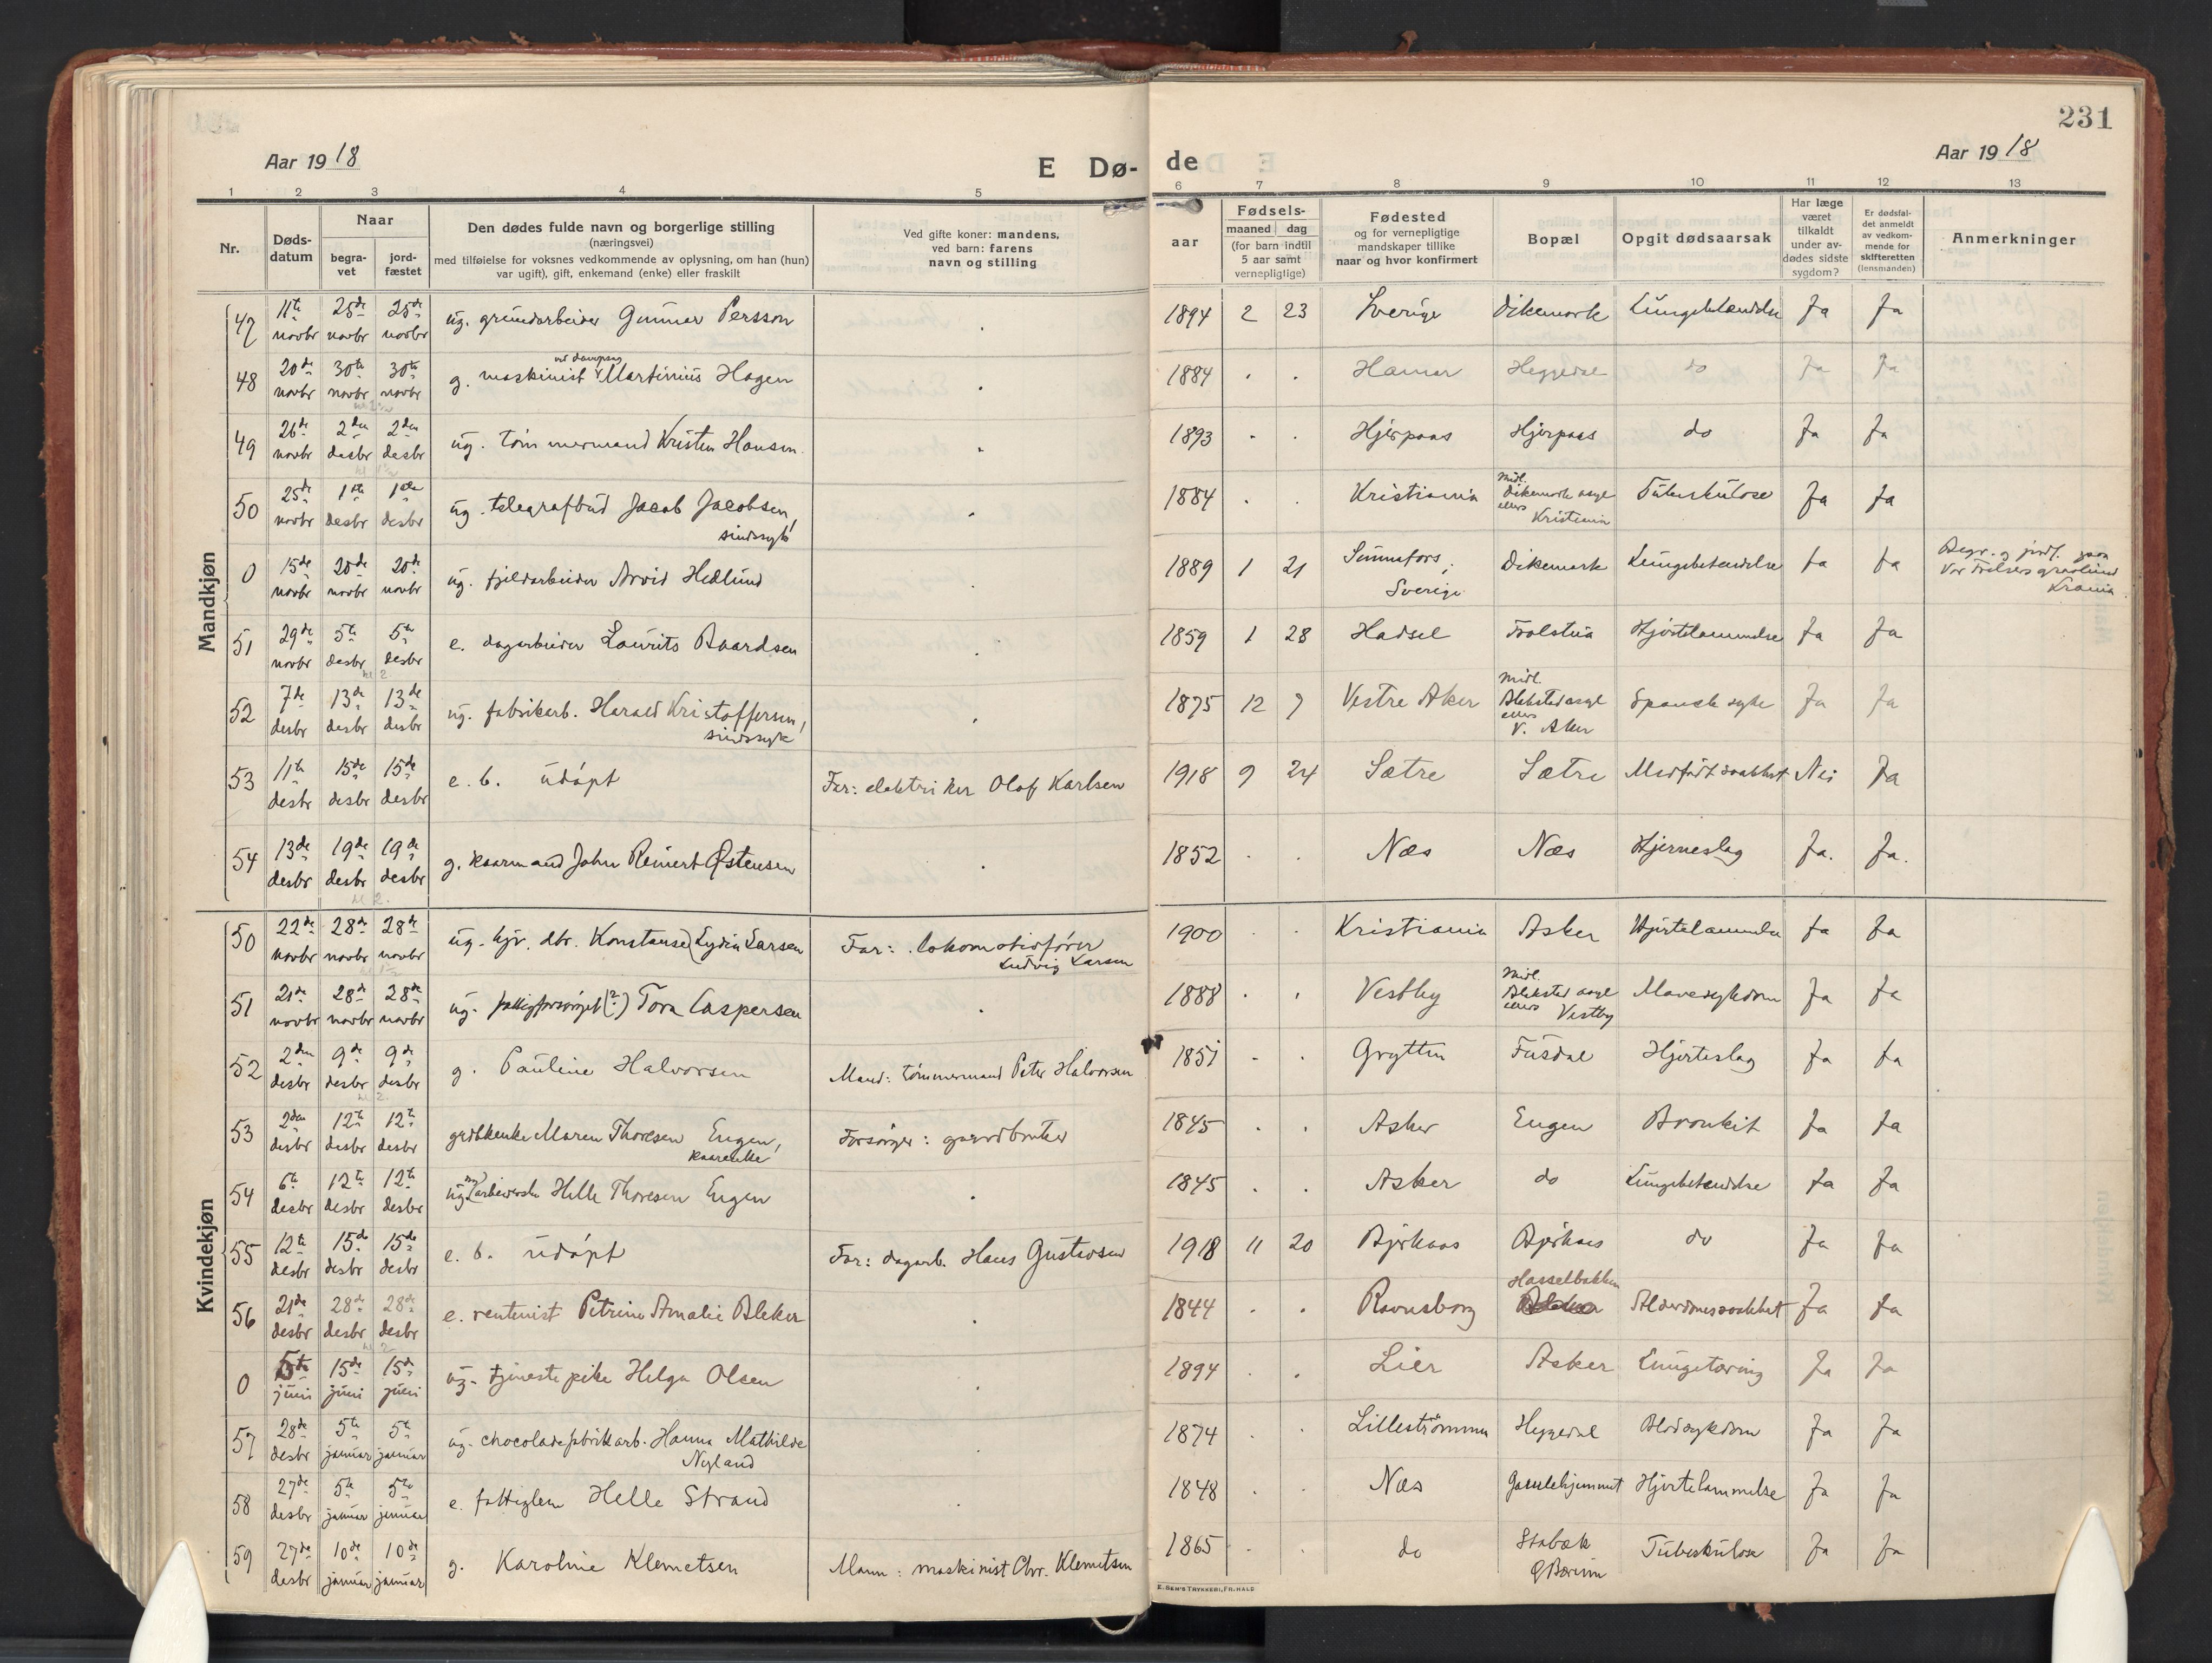 231
Aar 1918
E Dø-
de
Aar 1918
1 2 3 4 5 6 7 8 9 10 11 12 13
Nr.
Døds-
datum
Naar
begra-
vet
jord-
fæstet
Den dødes fulde navn og borgerlige stilling
(næringsvei)
med tilføielse for voksnes vedkommende av oplysning, om han (hun)
var ugift), gift, enkemand (enke) eller fraskilt
Ved gifte koner: mandens,
ved barn: farens
navn og stilling
aar
Fødsels-
maaned dag
(for barn indtil
5 aar samt
vernepligtige)
Fødested
og for vernepligtige
mandskaper tillike
naar og hvor konfirmert
Bopæl
Opgit dødsaarsak
Har læge
været
tilkaldt
under av-
dødes sidste
sygdom?
Er dødsfal-
det anmeldt
av vedkom-
mende for
skifteretten
(lensmanden)
Anmerkninger
Mandkjøn
47 11te novbr 25de novbr 25de novbr ug. grundarbeider Gunnar Persson 1894 2 23 Sverige Dikemark Lungebetændelse Ja Ja
48 20de novbr 30te novbr 30te novbr g. maskinist ved dampsag Martinius Hagen 1884 Hamar Heggedal do Ja Ja
49 26de novbr 2den desbr 2den desbr ug. tømmermand Kristen Hansen 1893 Hjerpaas Hjerpaas do Ja Ja
50 25de novbr 1ste desbr 1ste desbr ug. telegrafbud Jacob Jacobsen, sindssyk 1884 Kristiania Midl. Dikemark asyl ellers Kristiania Tuberkulose Ja Ja
0 15de novbr 20de novbr 20de novbr ug. fjeldarbeider Arvid Hedlund 1889 1 21 Sverige Dikemark Lungebetændelse Ja Ja Begr. og jordf. paa Vor Frelsers gravlund Krania
51 29de novbr 5te desbr 5te desbr e. dagarbeider Laurits Baardsen 1859 1 28 Hadsel Hjertelammelse Ja Ja
kl 2
52 7de desbr 13de desbr 13de desbr ug. fabrikarb. Harald Kristoffersen, sindssyk 1875 12 7 Vestre Aker Midl. Blakstad asyl ellers V. Aker Spansk syke Ja Ja
53 11te desbr 15de desbr 15de desbr e. b. udøpt Far: elektriker Olaf Karlsen 1918 9 24 Sætre Sætre Medfødt svakhet Nei Ja
54 13de desbr 19de desbr 19de desbr g. kaarmand John Reinert Østensen 1852 Næs Næs Hjerneslag Ja. Ja.
kl 2.
Kvindekjøn
50 22de novbr 28de novbr 28de novbr ug. hjv. dtr. Konstanse Lydia Larsen Far: lokomotivfører Ludvig Larsen 1900 Kristiania Asker Hjertelammelse Ja Ja
51 21de novbr 28de novbr 28de novbr ug. fattigforsørget (?) Tora Caspersen 1888 Vestby Midl. Blakstad asyl ellers Vestby Mavesykdom Ja Ja
52 2den desbr 9de desbr 9de desbr g. Pauline Halvorsen Mand: tømmermand Peter Halvorsen 1851 Grytten Fusdal Hjerteslag Ja Ja
kl 2
53 2den desbr 12te desbr 12te desbr grdbkenke Maren Thoresen Engen, kaarenke Forsørger: gaardbruker 1845 Asker Engen Bronkit Ja Ja
54 6te desbr 12te desbr 12te desbr ug. arbeiderske Helle Thoresen Engen 1845 Asker do Lungebetændelse Ja Ja
55 12te desbr 15de desbr 15de desbr e. b. udøpt Far: dagarb. Hans Gustavsen 1918 11 20 Bjerkaas Bjerkaas do Ja Ja
56 21de desbr 28de desbr 28de desbr e. rentenist Petrine Amalie Bleker 1844 Ravnsborg Hasselbakken Alderdomssvakhet Ja Ja
kl 2
0 5te juni 15de juni 15de juni ug. tjenestepike Helga Olsen 1894 Lier Asker Lungetæring Ja Ja
57 28de desbr 5te januar 5te januar ug. chocoladefabrikarb. Hanna Mathilde Nyland 1874 Lillestrømmen Heggedal Blodsykdom Ja Ja
58 27de desbr 5te januar 5te januar e. fattiglem Helle Strand 1848 Næs Gamlehjemmet Hjertelammelse Ja Ja
59 27de desbr 10de januar 10de januar g. Karoline Klemetsen Mann: maskinist Chr. Klemetsen 1865 do Stabæk Ø Bærum Tuberkulose Ja Ja
E. SEM'S TRYKKERI, FR.HALD